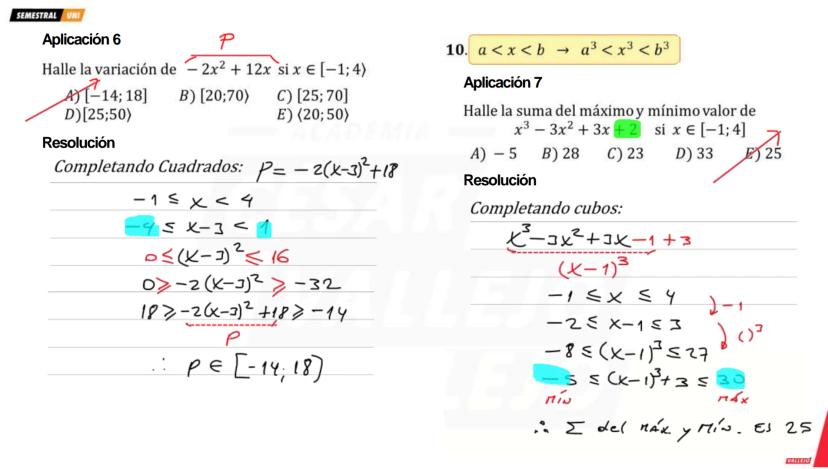 SEMESTRAL UNI
Aplicación 6
P
Halle la variación de − 2x² + 12x si x ∈ [−1; 4⟩
A) [−14; 18] B) [20;70⟩ C) [25; 70]
D)[25;50⟩ E) ⟨20; 50⟩
Resolución
Completando Cuadrados: P = −2(x−3)² + 18
−1 ≤ x < 4
−4 ≤ x−3 < 1
0 ≤ (x−3)² ≤ 16
0 ≥ −2(x−3)² ≥ −32
18 ≥ −2(x−3)² + 18 ≥ −14
P
∴ P ∈ [−14; 18]
10. a < x < b → a³ < x³ < b³
Aplicación 7
Halle la suma del máximo y mínimo valor de
x³ − 3x² + 3x + 2 si x ∈ [−1; 4]
A) − 5 B) 28 C) 23 D) 33 E) 25
Resolución
Completando cubos:
x³ − 3x² + 3x − 1 + 3
(x−1)³
−1 ≤ x ≤ 4
−1
−2 ≤ x−1 ≤ 3
( )³
−8 ≤ (x−1)³ ≤ 27
−5 ≤ (x−1)³ + 3 ≤ 30
mín máx
∴ Σ del máx y mín. es 25
ACADEMIA
CÉSAR
VALLEJO
VALLEJO